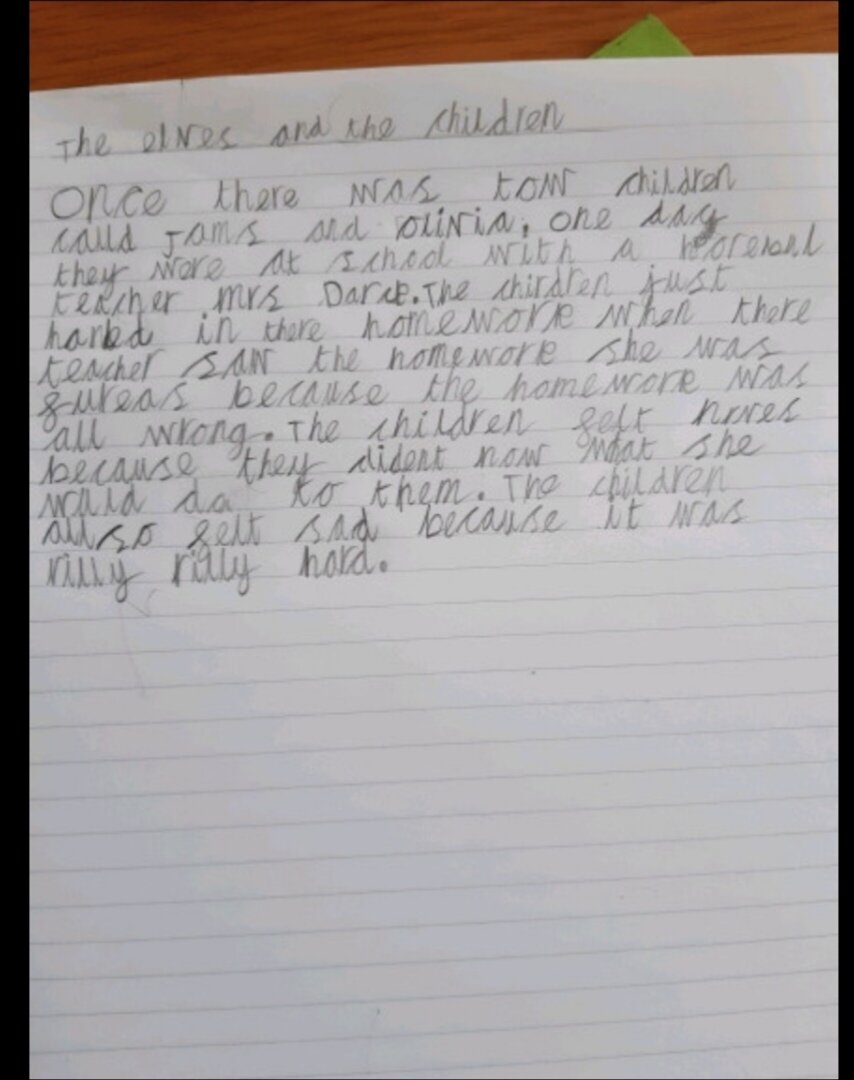 The elves and the children
Once there was tow children
calld Jams and Olivia. One day
they wore at school with a
teacher mrs Darce. The children just
handed in there homework when there
teacher saw the homework she was
fureas because the homework was
all wrong. The children felt nrves
because they dident now what she
would do to them. The children
allso felt sad because it was
rilly rilly hard.